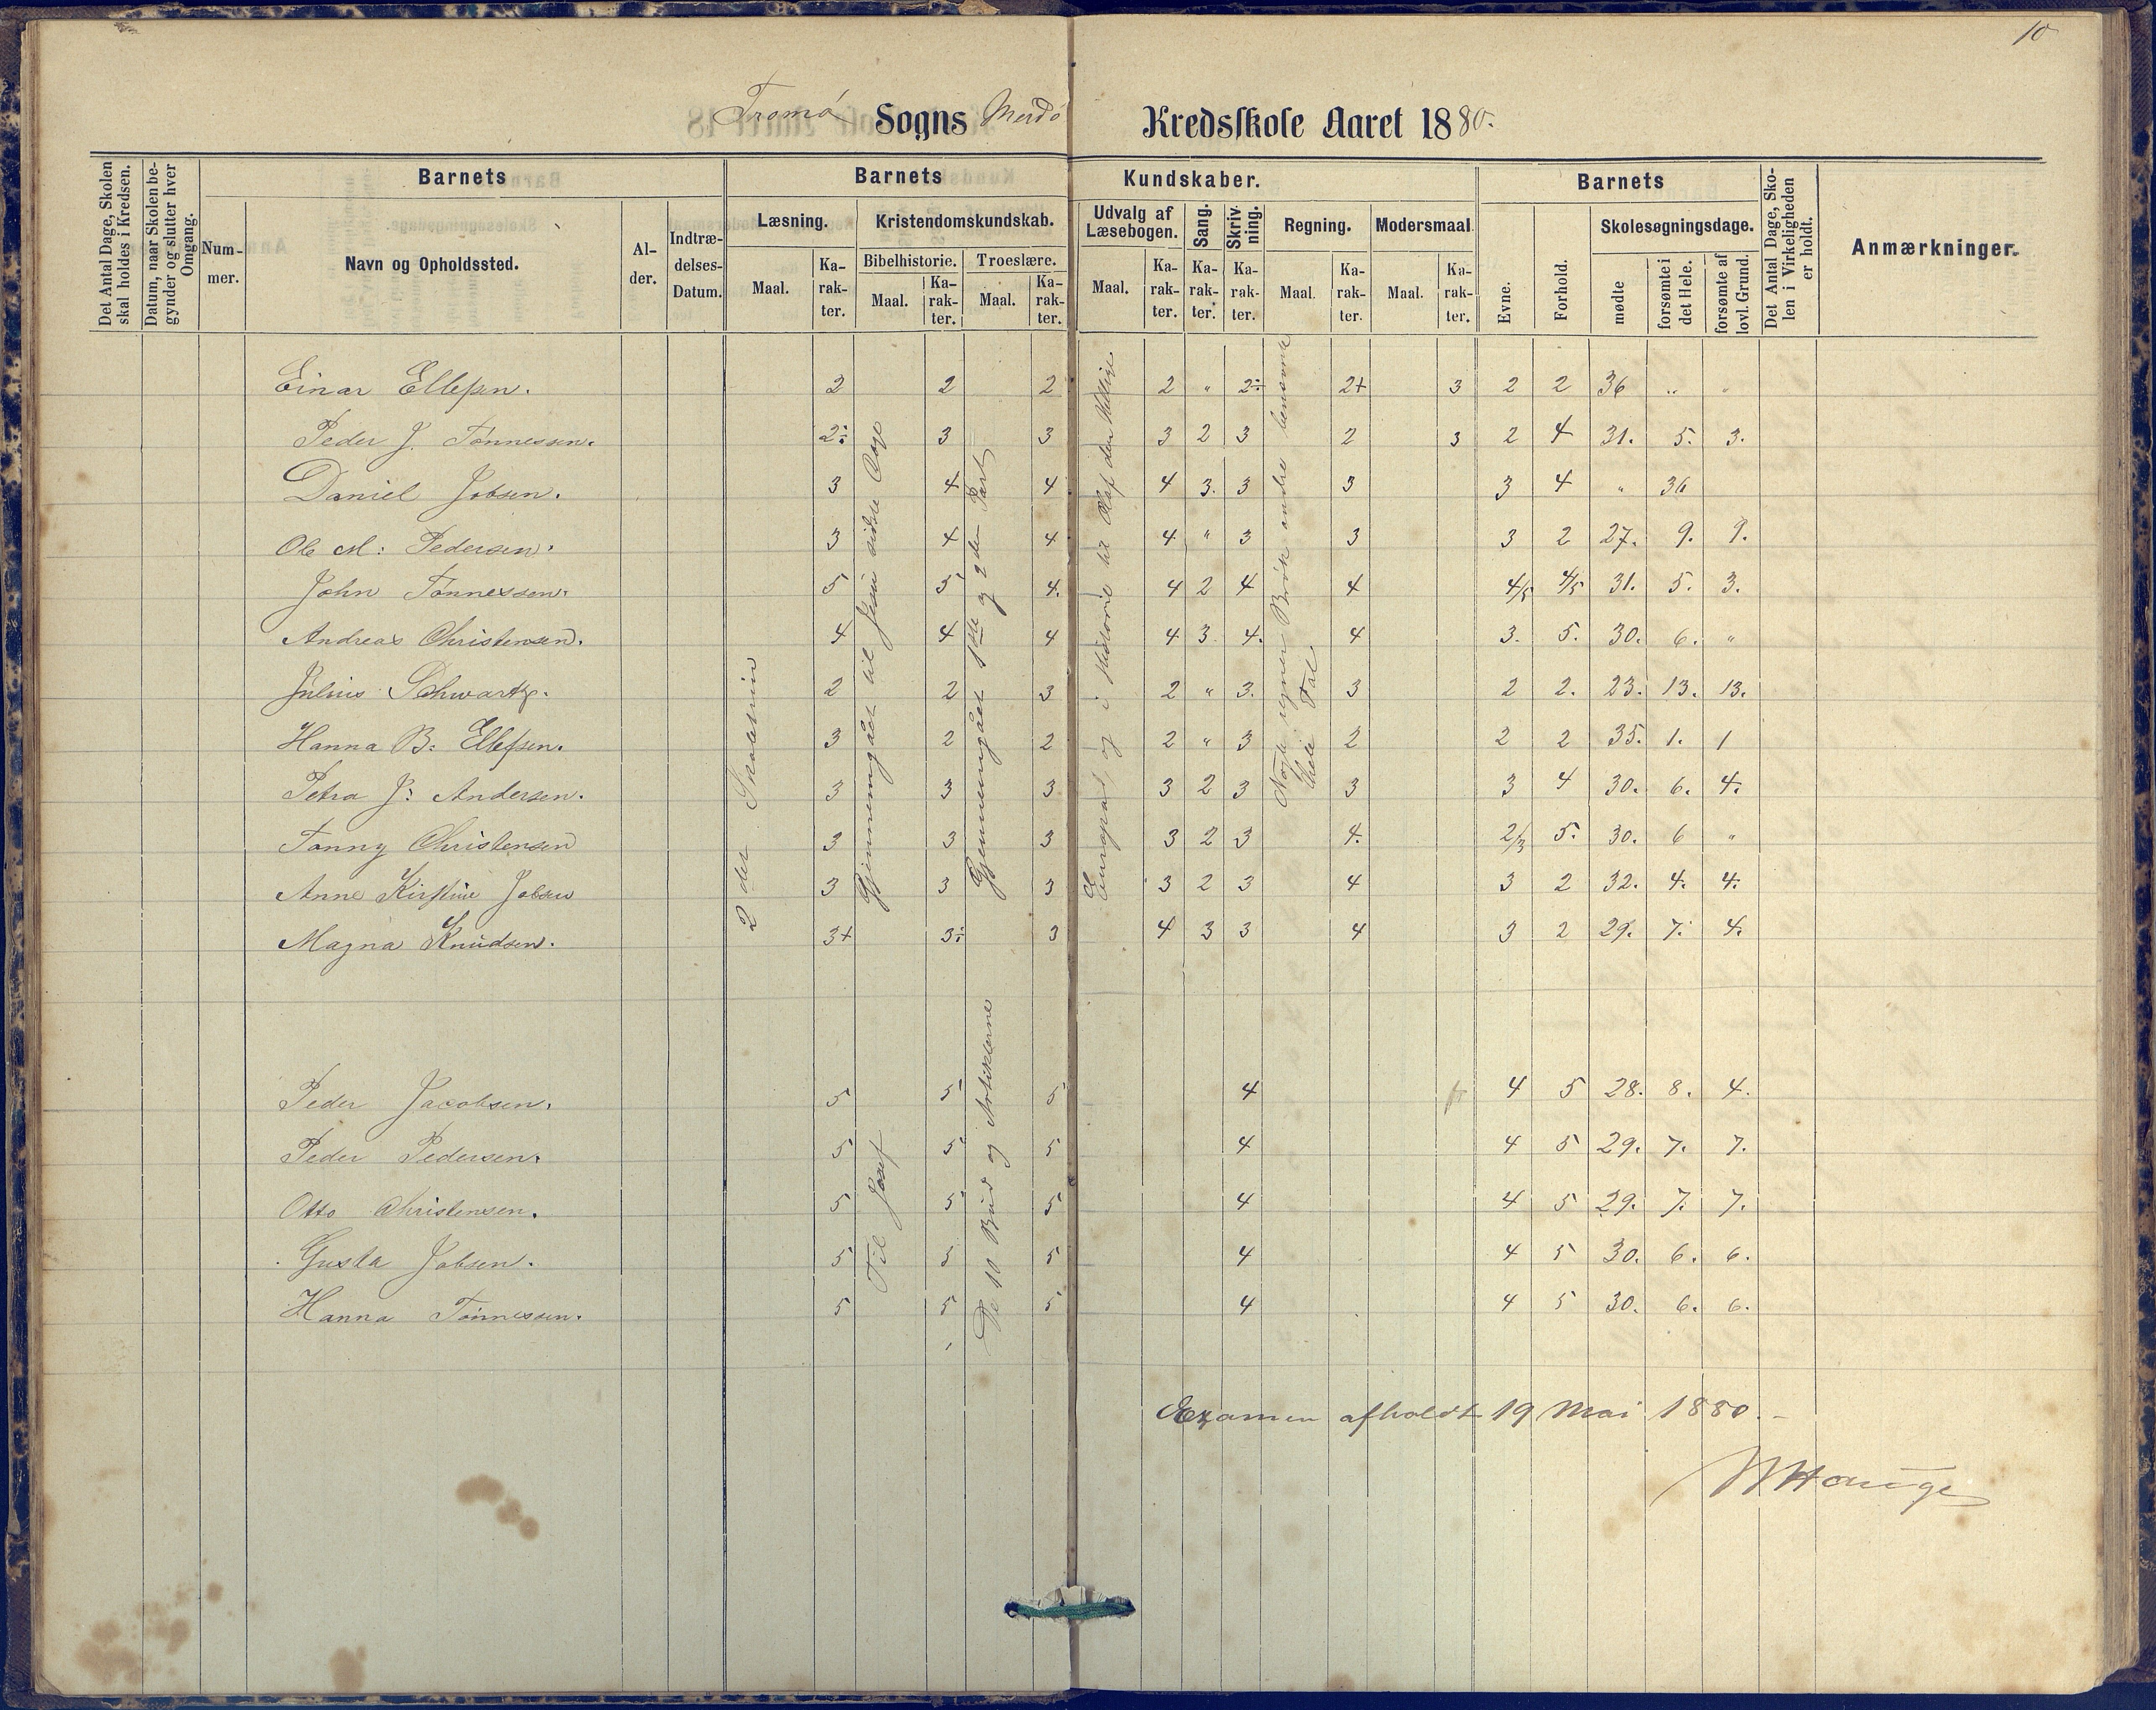 10
Tromø Sogns Merdø Kredsskole Aaret 1880.
Det Antal Dage, Skolen skal holdes i Kredsen.
Datum, naar Skolen begynder og slutter hver Omgang.
Barnets
Nummer.
Navn og Opholdssted.
Alder.
Indtrædelses-Datum.
Barnets Kundskaber.
Læsning.
Maal.
Karakter.
Kristendomskundskab.
Bibelhistorie.
Maal.
Karakter.
Troeslære.
Maal.
Karakter.
Udvalg af Læsebogen.
Maal.
Karakter.
Sang.
Karakter.
Skrivning.
Karakter.
Regning.
Maal.
Karakter.
Modersmaal.
Maal.
Karakter.
Barnets
Evne.
Forhold.
Skolesøgningsdage.
mødte
forsømte i det Hele.
forsømte af lovl. Grund.
Det Antal Dage, Skolen i Virkeligheden er holdt.
Anmærkninger.
Einar Ellefsen. 2 2 2 2 " 2÷ 2+ 3 2 2 36 " "
Peder J. Tønnessen. 2÷ 3 3 3 2 3 2 3 2 4 31. 5. 3.
Daniel Jobsen. 3 4 4 4 3. 3 3 3 4 " 36
Ole M: Pedersen. 3 4 4 4 " 3 3 3 2 27. 9. 9.
John Tønnessen. 5 5 4. 4 2 4 4 4/5 4/5 31. 5. 3.
Andreas Christensen. 4 4 4 4 3 4. 4 3. 5. 30. 6. "
Julius Schwartz. 2 2 3 2 " 3. 3 2 2. 23. 13. 13.
Hanna B. Ellefsen. 3 2 2 2 " 3 2 2 2 35. 1. 1
Petra J: Andersen. 3 3 3 3 2 3 3 3 4 30. 6. 4.
Fanny Christensen 3 3 3 3 2 3 4. 2/3 5. 30. 6 "
Anne Kirstine Jobsen 3 3 3 3 2 3 4 3 2 32. 4. 4.
Magna Knudsen. 3+ 3÷ 3 4 3 3 4 3 2 29. 7. 4.
2 det Skoletrin
Gjennemgået til Jesu sidste Dage
Gjennemgået 1ste og 2den Part
Europa, og i Historie til Olaf den Hellige
Nogle regner Brøk andre benævnte
hele Tal
Peder Jacobsen. 5 5 5 4 4 5 28. 8. 4.
Peder Pedersen. 5 5 5 4 4 5 29. 7. 7.
Otto Christensen. 5 5 5 4 4 5 29. 7. 7.
Gusta Jobsen. 5 5 5 4 4 5 30. 6. 6.
Hanna Tønnessen. 5 5 5 4 4 5 30. 6. 6.
Til Josef
De 10 Bud og Artiklerne
Examen afholdt 19 Mai 1880.-
Hauge